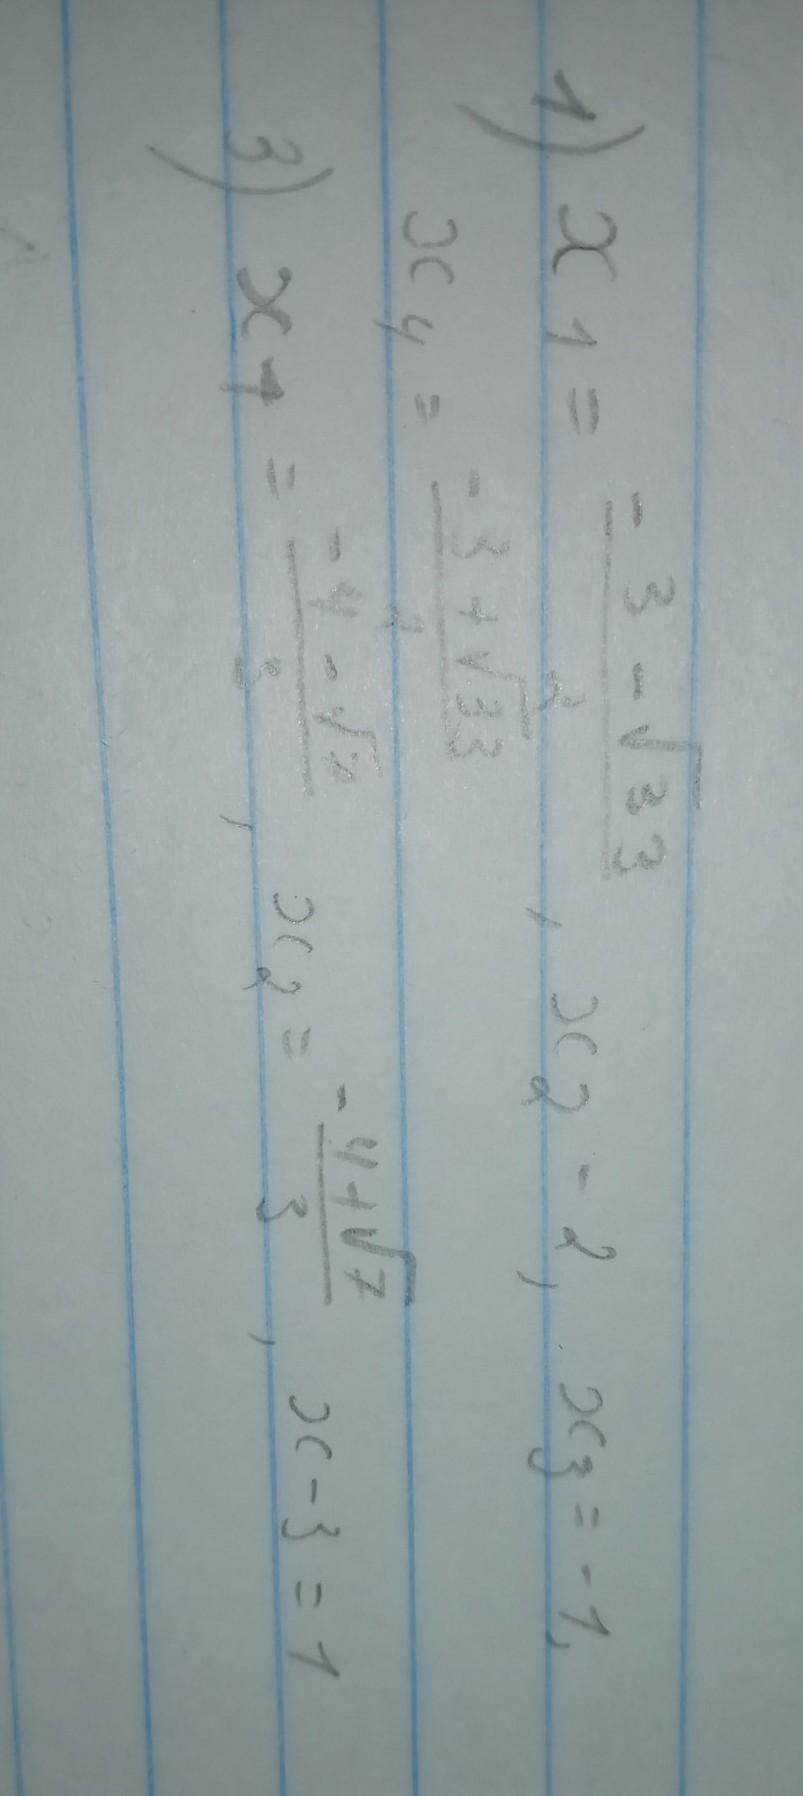 1) x1 = (-3 - √33)/2, x2 - 2, x3 = -1,
x4 = (-3 + √33)/2
3) x1 = (-4 - √7)/3, x2 = (-4 + √7)/3, x - 3 = 1